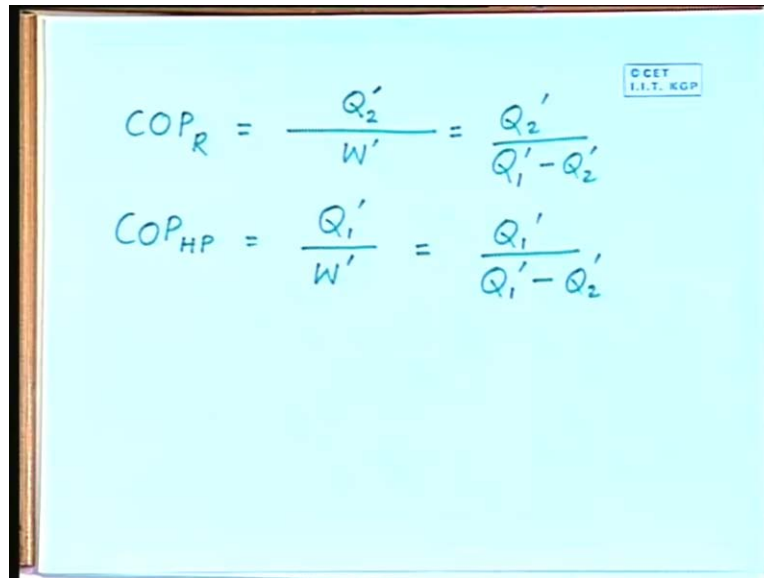 ©CET
I.I.T. KGP
COP_R = Q₂' / W' = Q₂' / (Q₁' − Q₂')
COP_HP = Q₁' / W' = Q₁' / (Q₁' − Q₂')